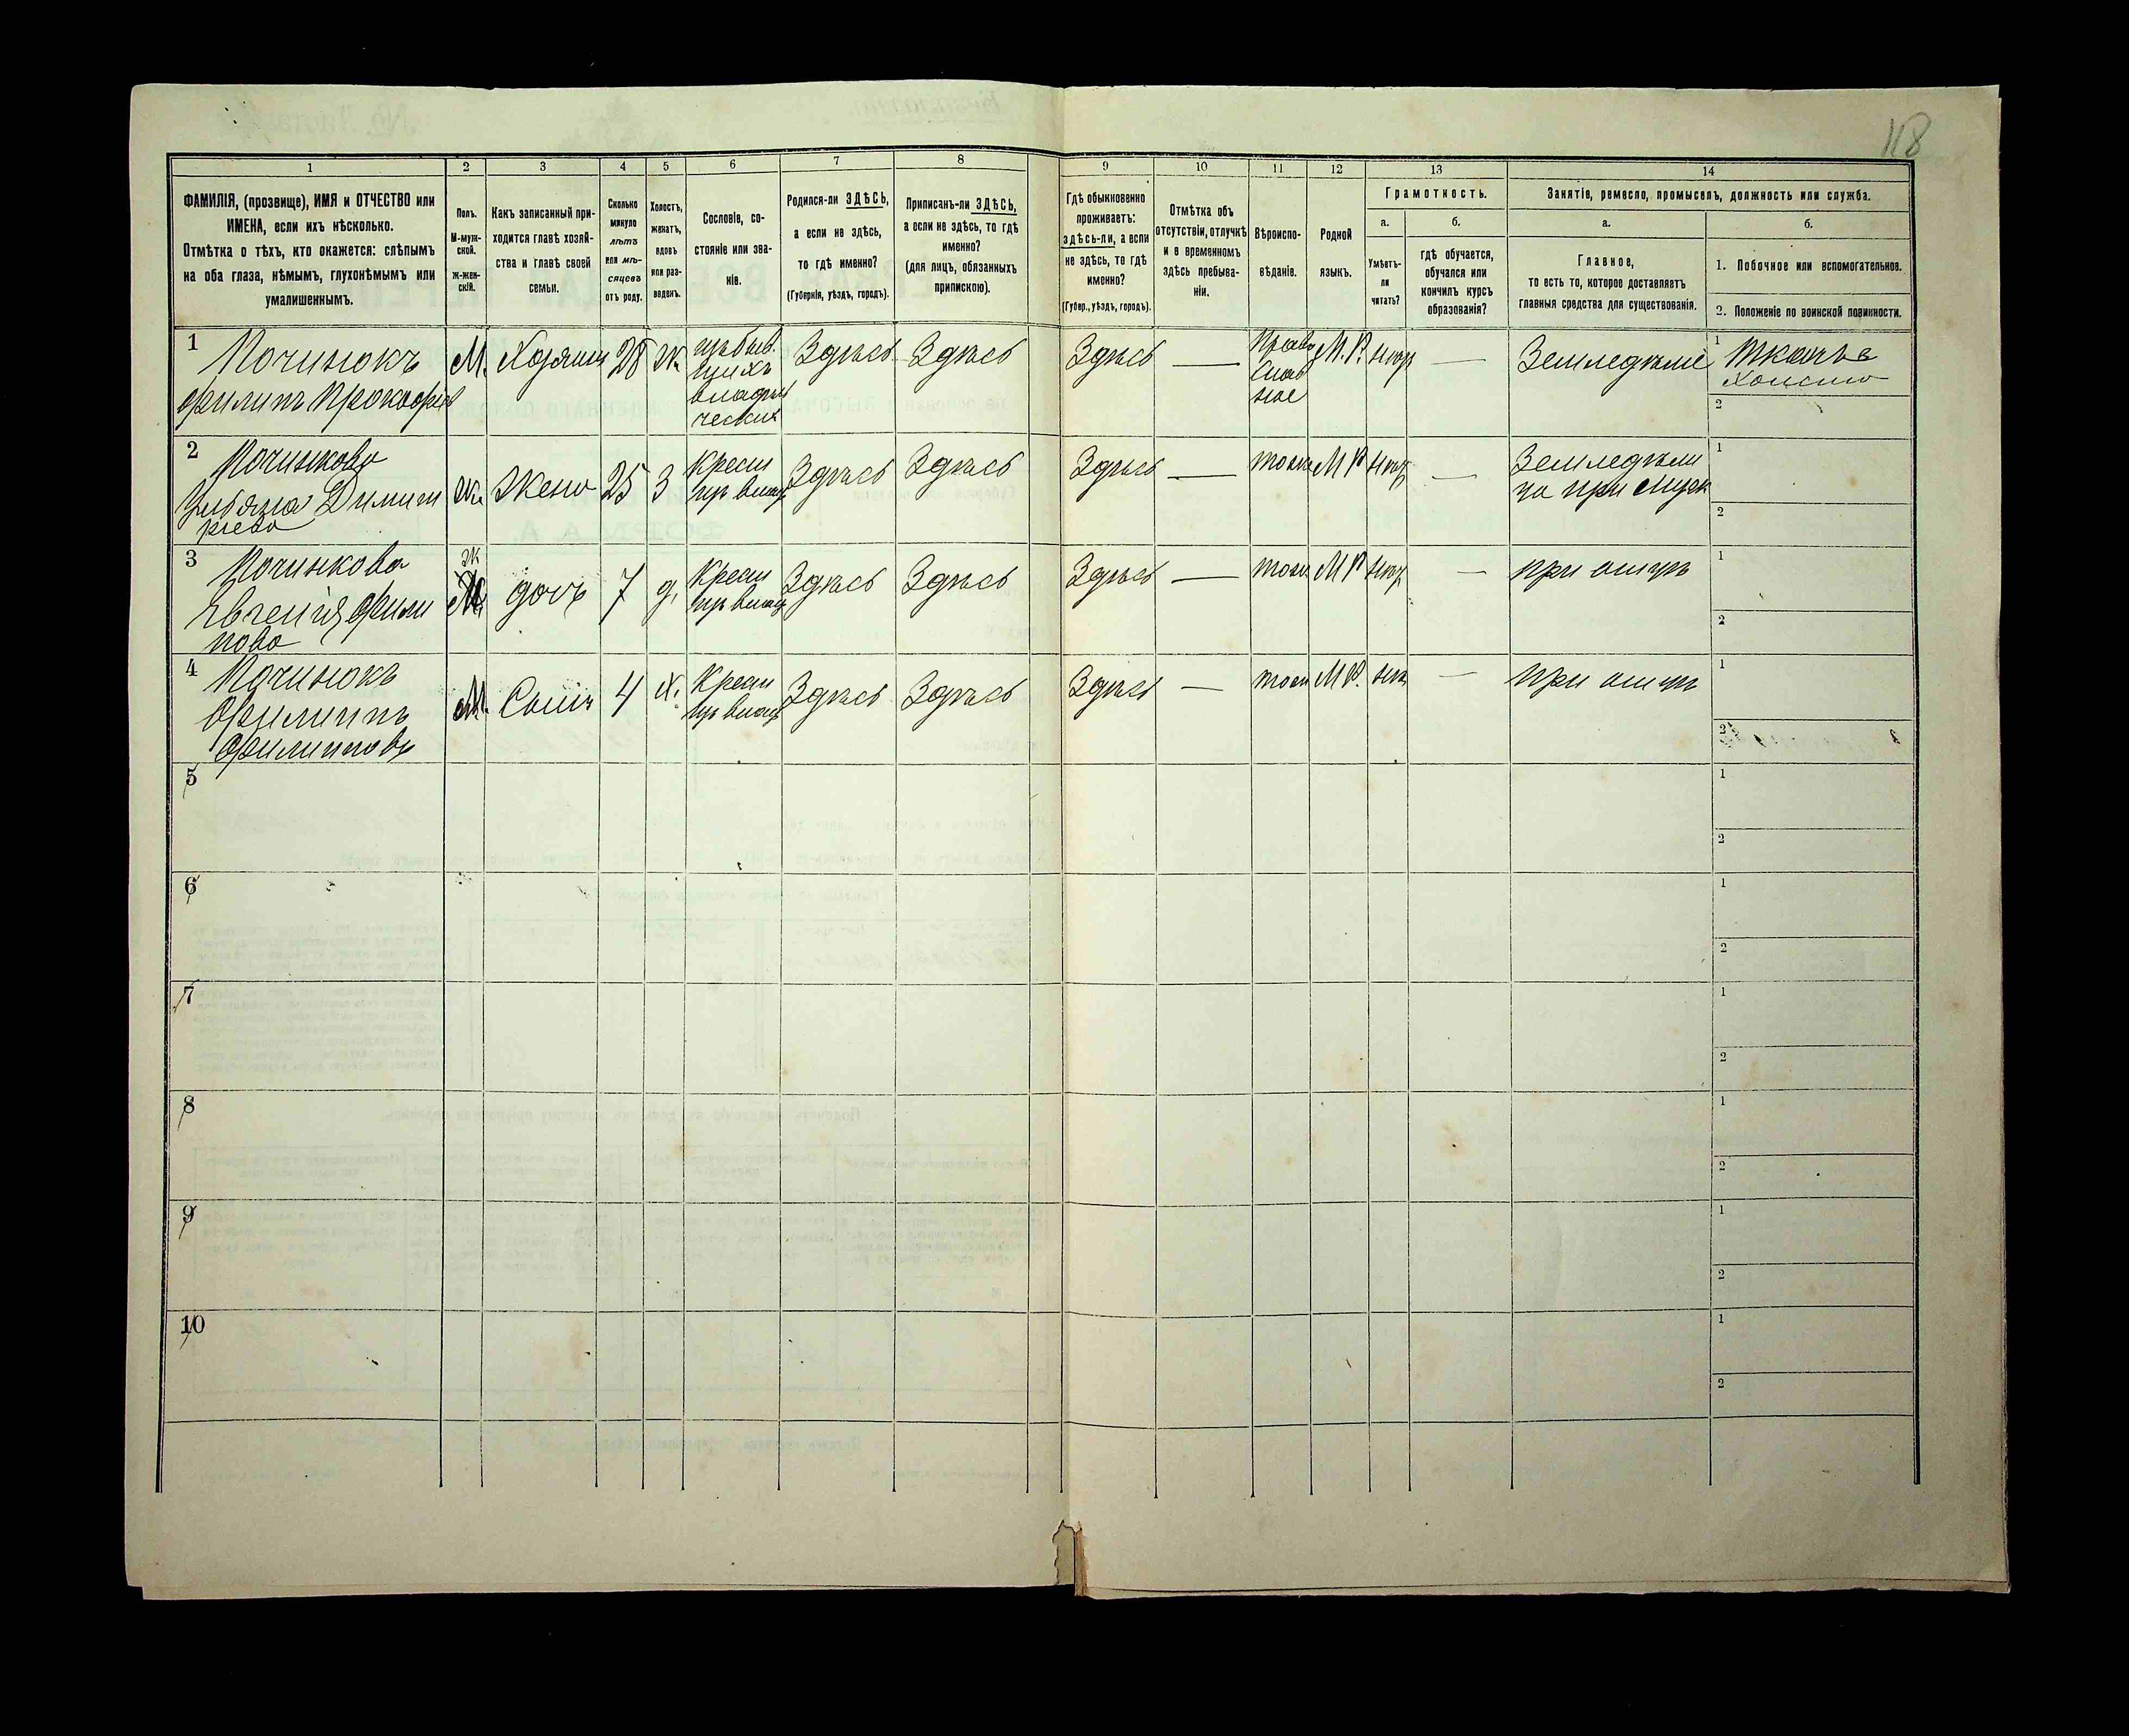 118
1
2
3
4
5
6
7
8
9
10
11
12
13
14
ФАМИЛІЯ, (прозвище), ИМЯ и ОТЧЕСТВО или
ИМЕНА, если ихъ нѣсколько.
Отмѣтка о тѣхъ, кто окажется: слѣпымъ
на оба глаза, нѣмымъ, глухонѣмымъ или
умалишеннымъ.
Полъ.
М-муж-
ской.
Ж-жен-
скій.
Какъ записанный при-
ходится главѣ хозяй-
ства и главѣ своей
семьи.
Сколько
минуло
лѣтъ
или мѣ-
сяцевъ
отъ роду.
Холостъ,
женатъ,
вдовъ
или раз-
веденъ.
Сословіе, со-
стояніе или зва-
ніе.
Родился-ли ЗДѢСЬ,
а если не здѣсь,
то гдѣ именно?
(Губернія, уѣздъ, городъ).
Приписанъ-ли ЗДѢСЬ,
а если не здѣсь, то гдѣ
именно?
(для лицъ, обязанныхъ
припискою).
Гдѣ обыкновенно
проживаетъ:
здѣсь-ли, а если
не здѣсь, то гдѣ
именно?
(Губер., уѣздъ, городъ).
Отмѣтка объ
отсутствіи, отлучкѣ
и о временномъ
здѣсь пребыва-
ніи.
Вѣроиспо-
вѣданіе.
Родной
языкъ.
Грамотность.
а.
Умѣетъ-
ли
читать?
б.
гдѣ обучается,
обучался или
кончилъ курсъ
образованія?
Занятіе, ремесло, промыселъ, должность или служба.
а.
Главное,
то есть то, которое доставляетъ
главныя средства для существованія.
б.
1. Побочное или вспомогательное.
2. Положеніе по воинской повинности.
1
Починокъ
Филипъ Прокофіев
М.
Хозяинъ
28
ж.
Здѣсь
Здѣсь
Здѣсь
—
Право
слав
ное
М. Р.
Земледѣліе
1
2
2
Починкова
Димит
риева
ж.
Жена
25
З
Крест
Здѣсь
Здѣсь
Здѣсь
—
тоже
М Р
—
Земледѣли
ца при муж
1
2
3
Починкова
Евгенія Фили
пова
ж
дочь
7
д.
Крест
Здѣсь
Здѣсь
Здѣсь
—
тоже
М Р
—
при отцѣ
1
2
4
Починокъ
Филиппъ
Филипповъ
М.
Сынъ
4
х.
Крест
Здѣсь
Здѣсь
Здѣсь
—
тоже
М Р.
—
при отцѣ
1
2
5
1
2
6
1
2
7
1
2
8
1
2
9
1
2
10
1
2